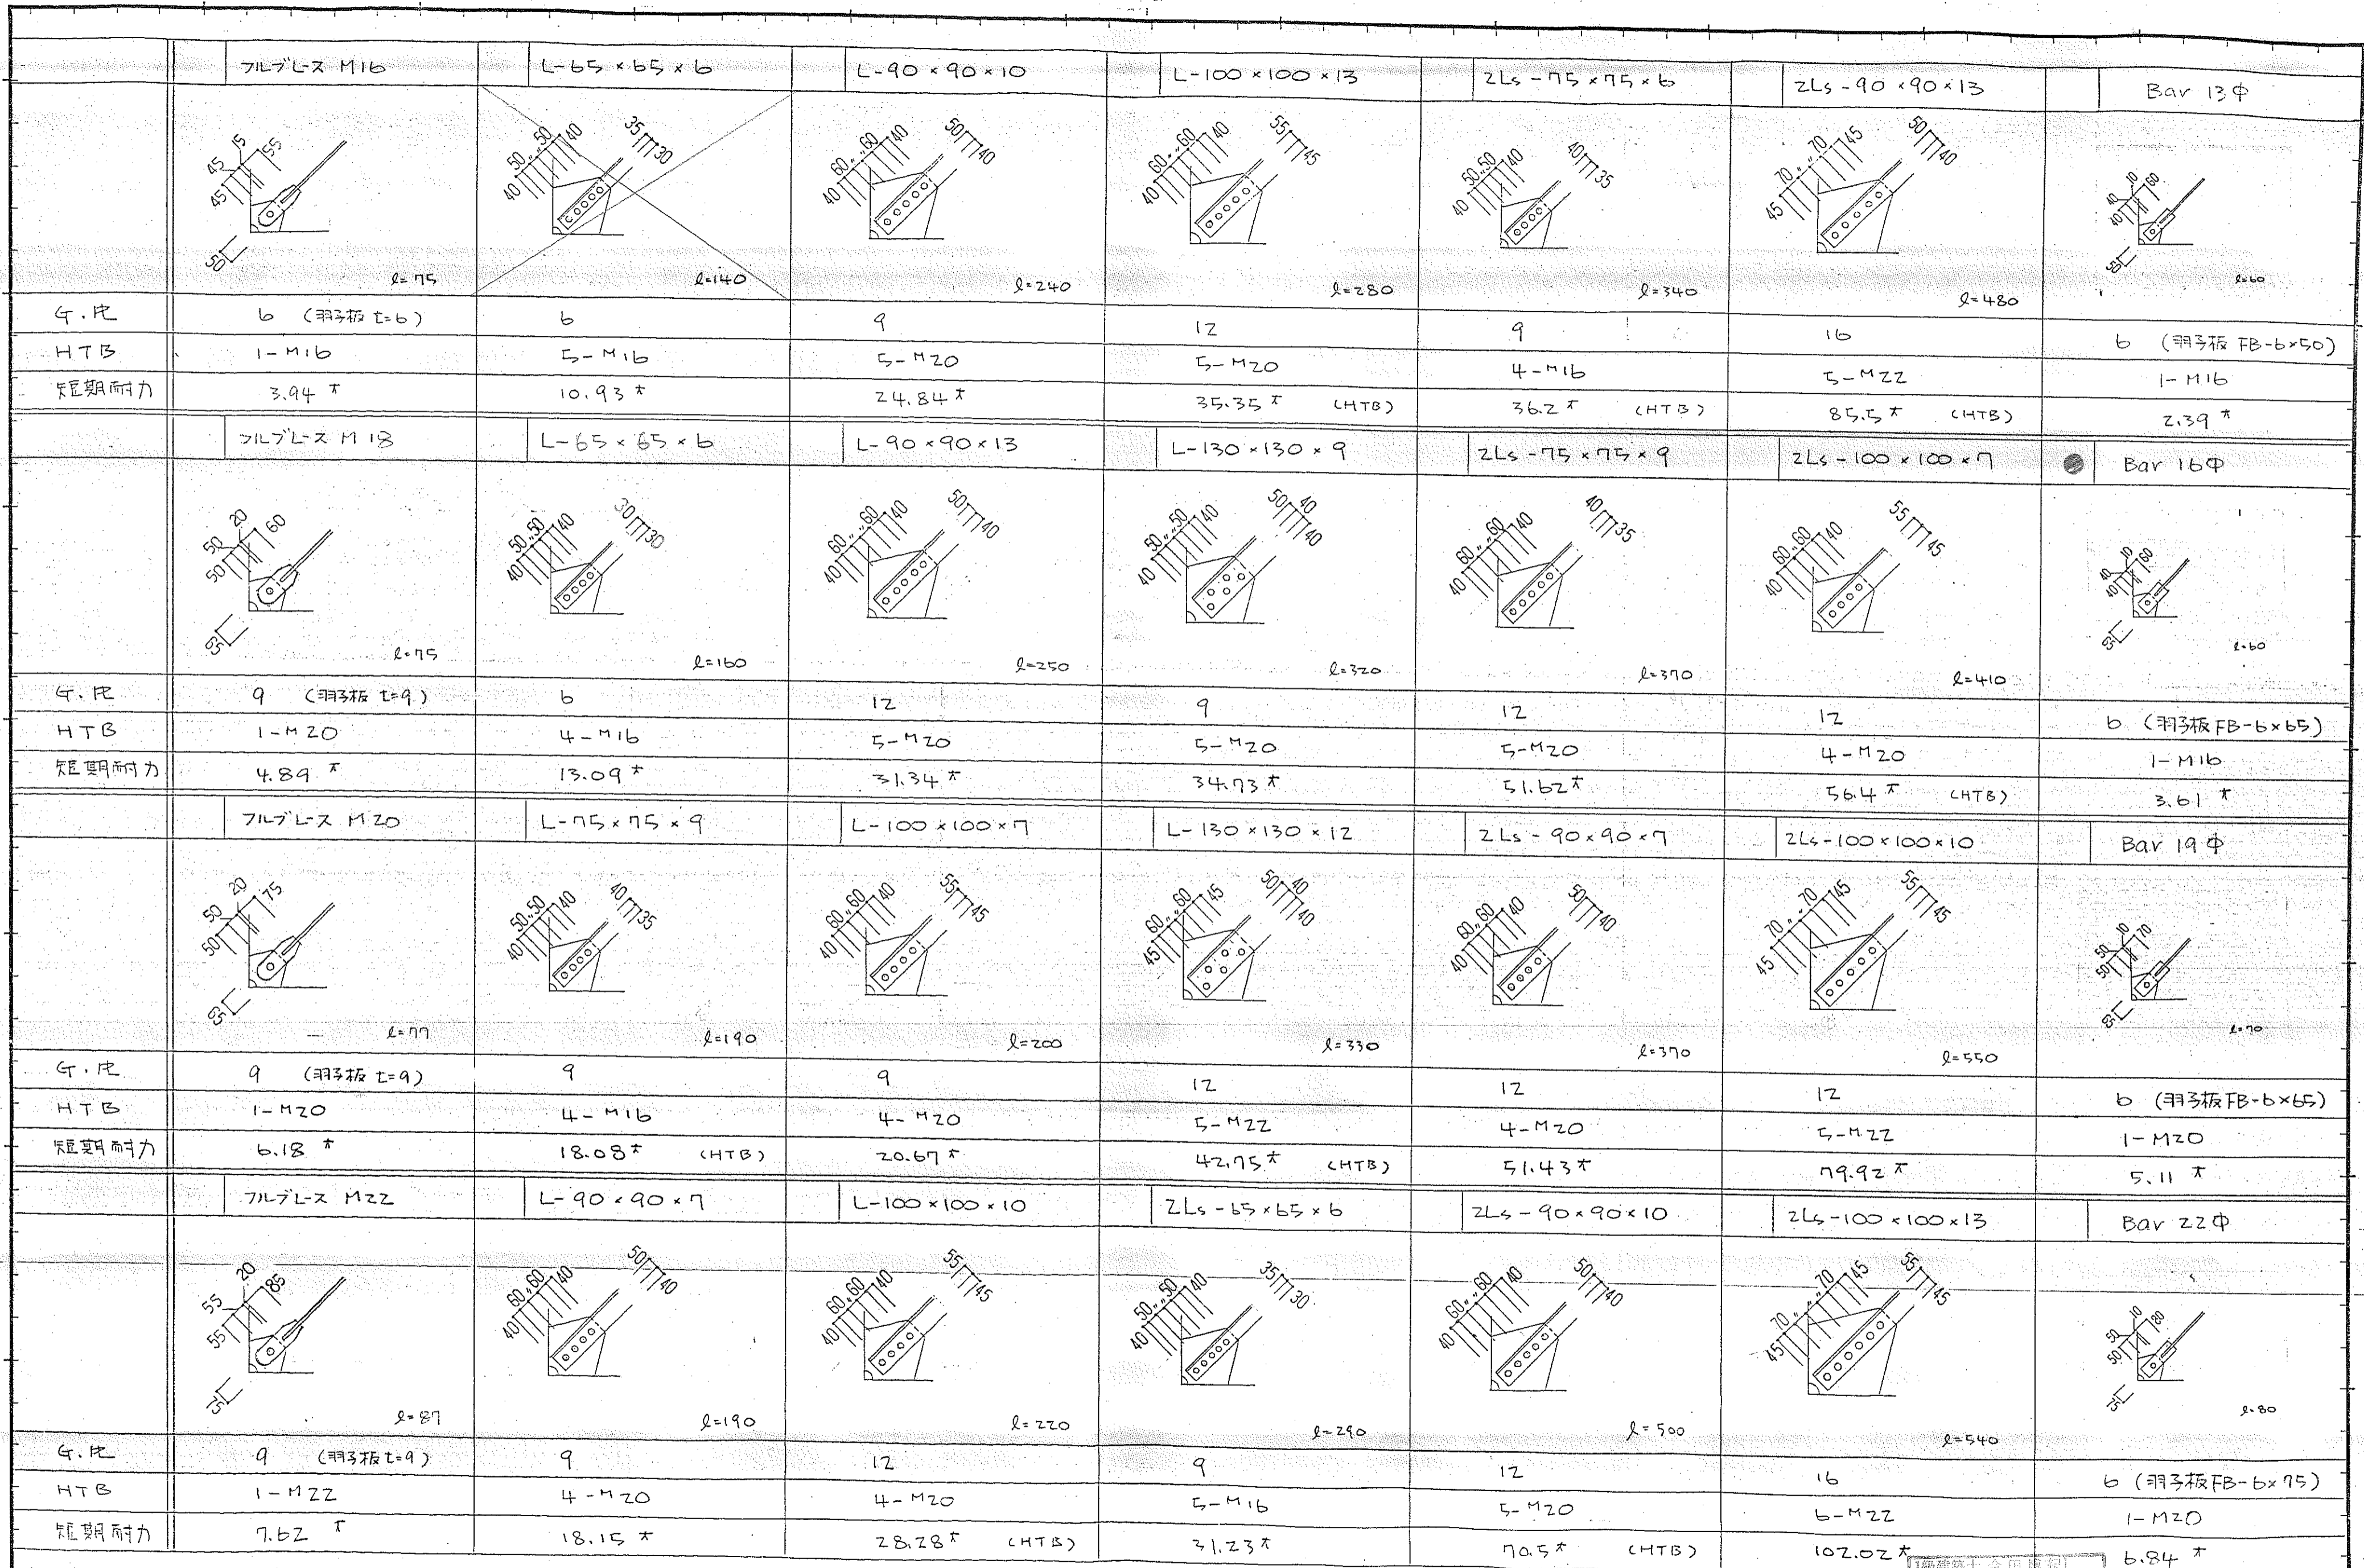 フルブレース M16 L-65×65×6 L-90×90×10 L-100×100×13 2Ls-75×75×6 2Ls-90×90×13 Bar 13Φ
45 45 15 55 50 40 50 〃 〃 50 40 35 30 40 60 〃 〃 60 40 50 40 40 60 〃 〃 60 40 55 45 40 50 〃 50 40 40 35 45 70 〃 〃 70 45 50 40 40 40 10 60 50
l=75 l=140 l=240 l=280 l=340 l=480 l=60
G.PL 6 (羽子板 t=6) 6 9 12 9 16 6 (羽子板 FB-6×50)
HTB 1-M16 5-M16 5-M20 5-M20 4-M16 5-M22 1-M16
短期耐力 3.94 t 10.93 t 24.84 t 35.35 t (HTB) 36.2 t (HTB) 85.5 t (HTB) 2.39 t
フルブレース M18 L-65×65×6 L-90×90×13 L-130×130×9 2Ls-75×75×9 2Ls-100×100×7 Bar 16Φ
50 50 20 60 65 40 50 〃 50 40 30 30 40 60 〃 〃 60 40 50 40 40 50 〃 〃 50 40 50 40 40 40 60 〃 〃 60 40 40 35 40 60 〃 60 40 55 45 40 40 10 60 65
l=75 l=160 l=250 l=320 l=370 l=410 l=60
G.PL 9 (羽子板 t=9) 6 12 9 12 12 6 (羽子板 FB-6×65)
HTB 1-M20 4-M16 5-M20 5-M20 5-M20 4-M20 1-M16
短期耐力 4.89 t 13.09 t 31.34 t 34.73 t 51.62 t 56.4 t (HTB) 3.61 t
フルブレース M20 L-75×75×9 L-100×100×7 L-130×130×12 2Ls-90×90×7 2Ls-100×100×10 Bar 19Φ
50 50 20 75 65 40 50 〃 50 40 40 35 40 60 〃 60 40 55 45 45 60 〃 〃 60 45 50 40 40 40 60 〃 60 40 50 40 45 70 〃 〃 70 45 55 45 50 50 10 70 65
l=77 l=190 l=200 l=330 l=370 l=550 l=70
G.PL 9 (羽子板 t=9) 9 9 12 12 12 6 (羽子板 FB-6×65)
HTB 1-M20 4-M16 4-M20 5-M22 4-M20 5-M22 1-M20
短期耐力 6.18 t 18.08 t (HTB) 20.67 t 42.75 t (HTB) 51.43 t 79.92 t 5.11 t
フルブレース M22 L-90×90×7 L-100×100×10 2Ls-65×65×6 2Ls-90×90×10 2Ls-100×100×13 Bar 22Φ
55 55 20 85 75 40 60 〃 60 40 50 40 40 60 〃 60 40 55 45 40 50 〃 〃 50 40 35 30 40 60 〃 〃 60 40 50 40 45 70 〃 〃 70 45 55 45 50 50 10 80 75
l=87 l=190 l=220 l=290 l=500 l=540 l=80
G.PL 9 (羽子板 t=9) 9 12 9 12 16 6 (羽子板 FB-6×75)
HTB 1-M22 4-M20 4-M20 5-M16 5-M20 6-M22 1-M20
短期耐力 7.62 t 18.15 t 28.28 t (HTB) 31.23 t 70.5 t (HTB) 102.02 t 6.84 t